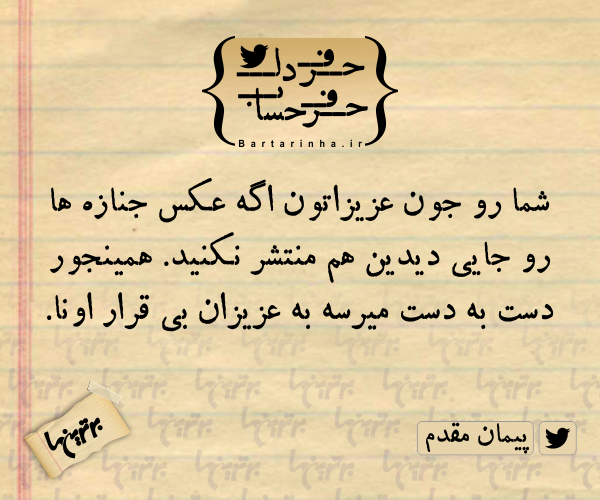 حرف دل
حرف حساب
Bartarinha.ir
شما رو جون عزیزاتون اگه عکس جنازه ها
رو جایی دیدین هم منتشر نکنید. همینجور
دست به دست میرسه به عزیزان بی قرار اونا.
برترین‌ها
پیمان مقدم